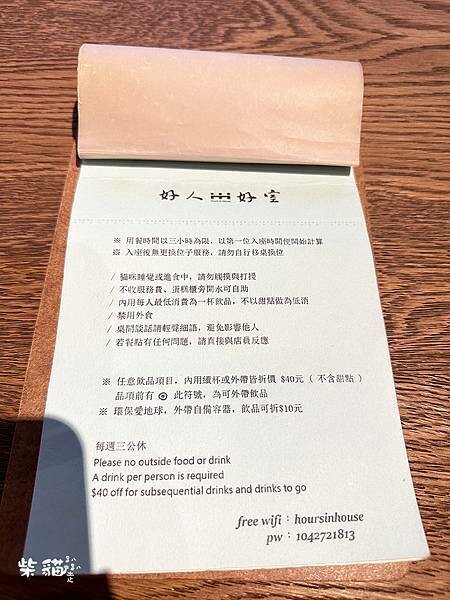 好人 好室
※ 用餐時間以三小時為限，以第一位入座時間便開始計算
※ 入座後無更換位子服務，請勿自行移桌換位
/ 貓咪睡覺或進食中，請勿觸摸與打擾
/ 不收服務費、蛋糕櫃旁開水可自助
/ 內用每人最低消費為一杯飲品，不以甜點做為低消
/ 禁用外食
/ 桌間談話請輕聲細語，避免影響他人
/ 若餐點有任何問題，請直接與店員反應
※ 任意飲品項目，內用續杯或外帶皆折價 $40元 ( 不含甜點 )
品項前有 ◉ 此符號，為可外帶飲品
※ 環保愛地球，外帶自備容器，飲品可折$10元
每週三公休
Please no outside food or drink
A drink per person is required
$40 off for subsequential drinks and drinks to go
free wifi：hoursinhouse
pw：1042721813
柴貓